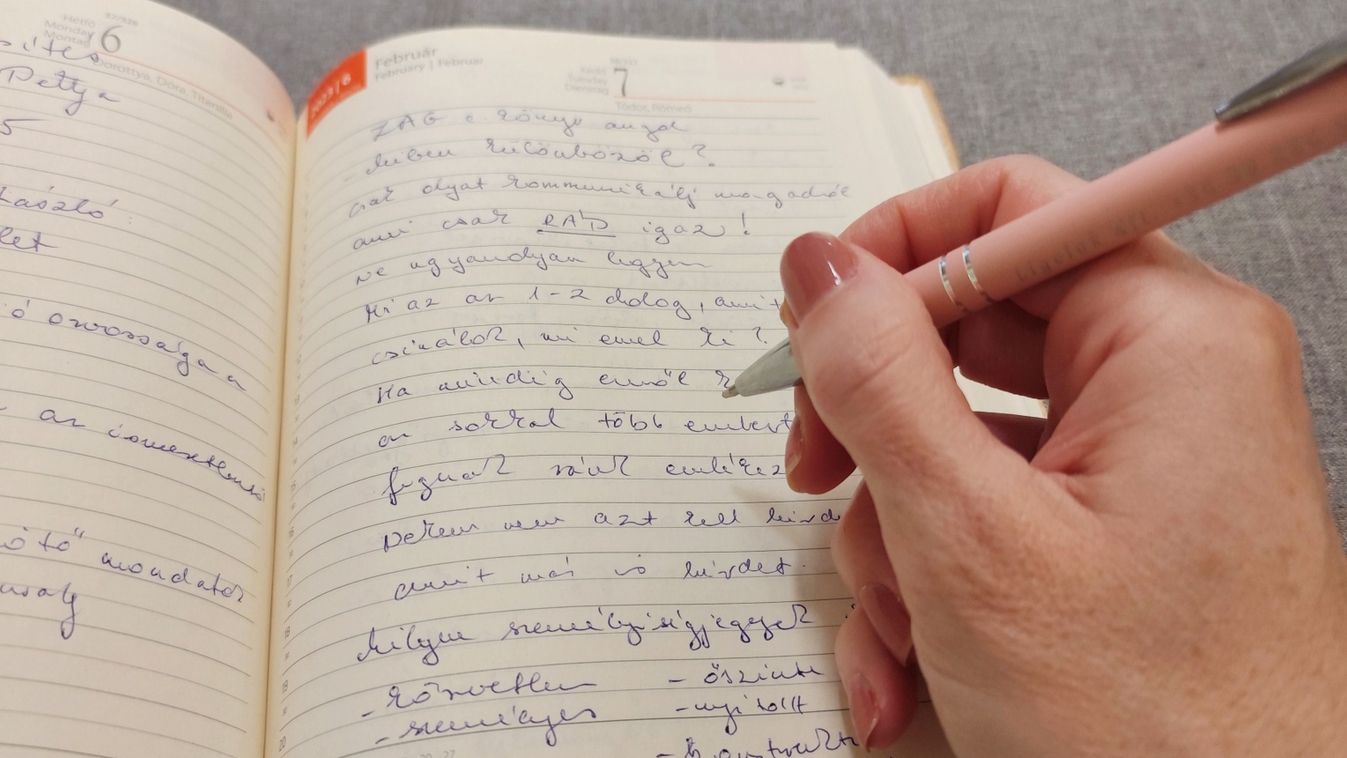 Hétfő
Monday
Montag
6
Dorottya, Dóra, Titanilla
Pettya
5
László
let
ó orvossága a
az ismeretlenső
mondatok
2023 | 6
Február
February | Februar
Kedd
Tuesday
Dienstag
7
Tódor, Rómeó
ZAG a könyv angol
- Miben különbözöl?
csak olyat kommunikálj magadról
ami csak RÁD igaz!
Ne ugyanolyan legyen
Mi az az 1-2 dolog, amit
csinálok, mi emel ki?
Ha mindig erről
az sokkal több embert
fognak ránk
Nekem nem azt kell hird
amit más is hirdet.
Milyen személyiségjegyek
- közvetlen - őszinte
- személyes - nyitott